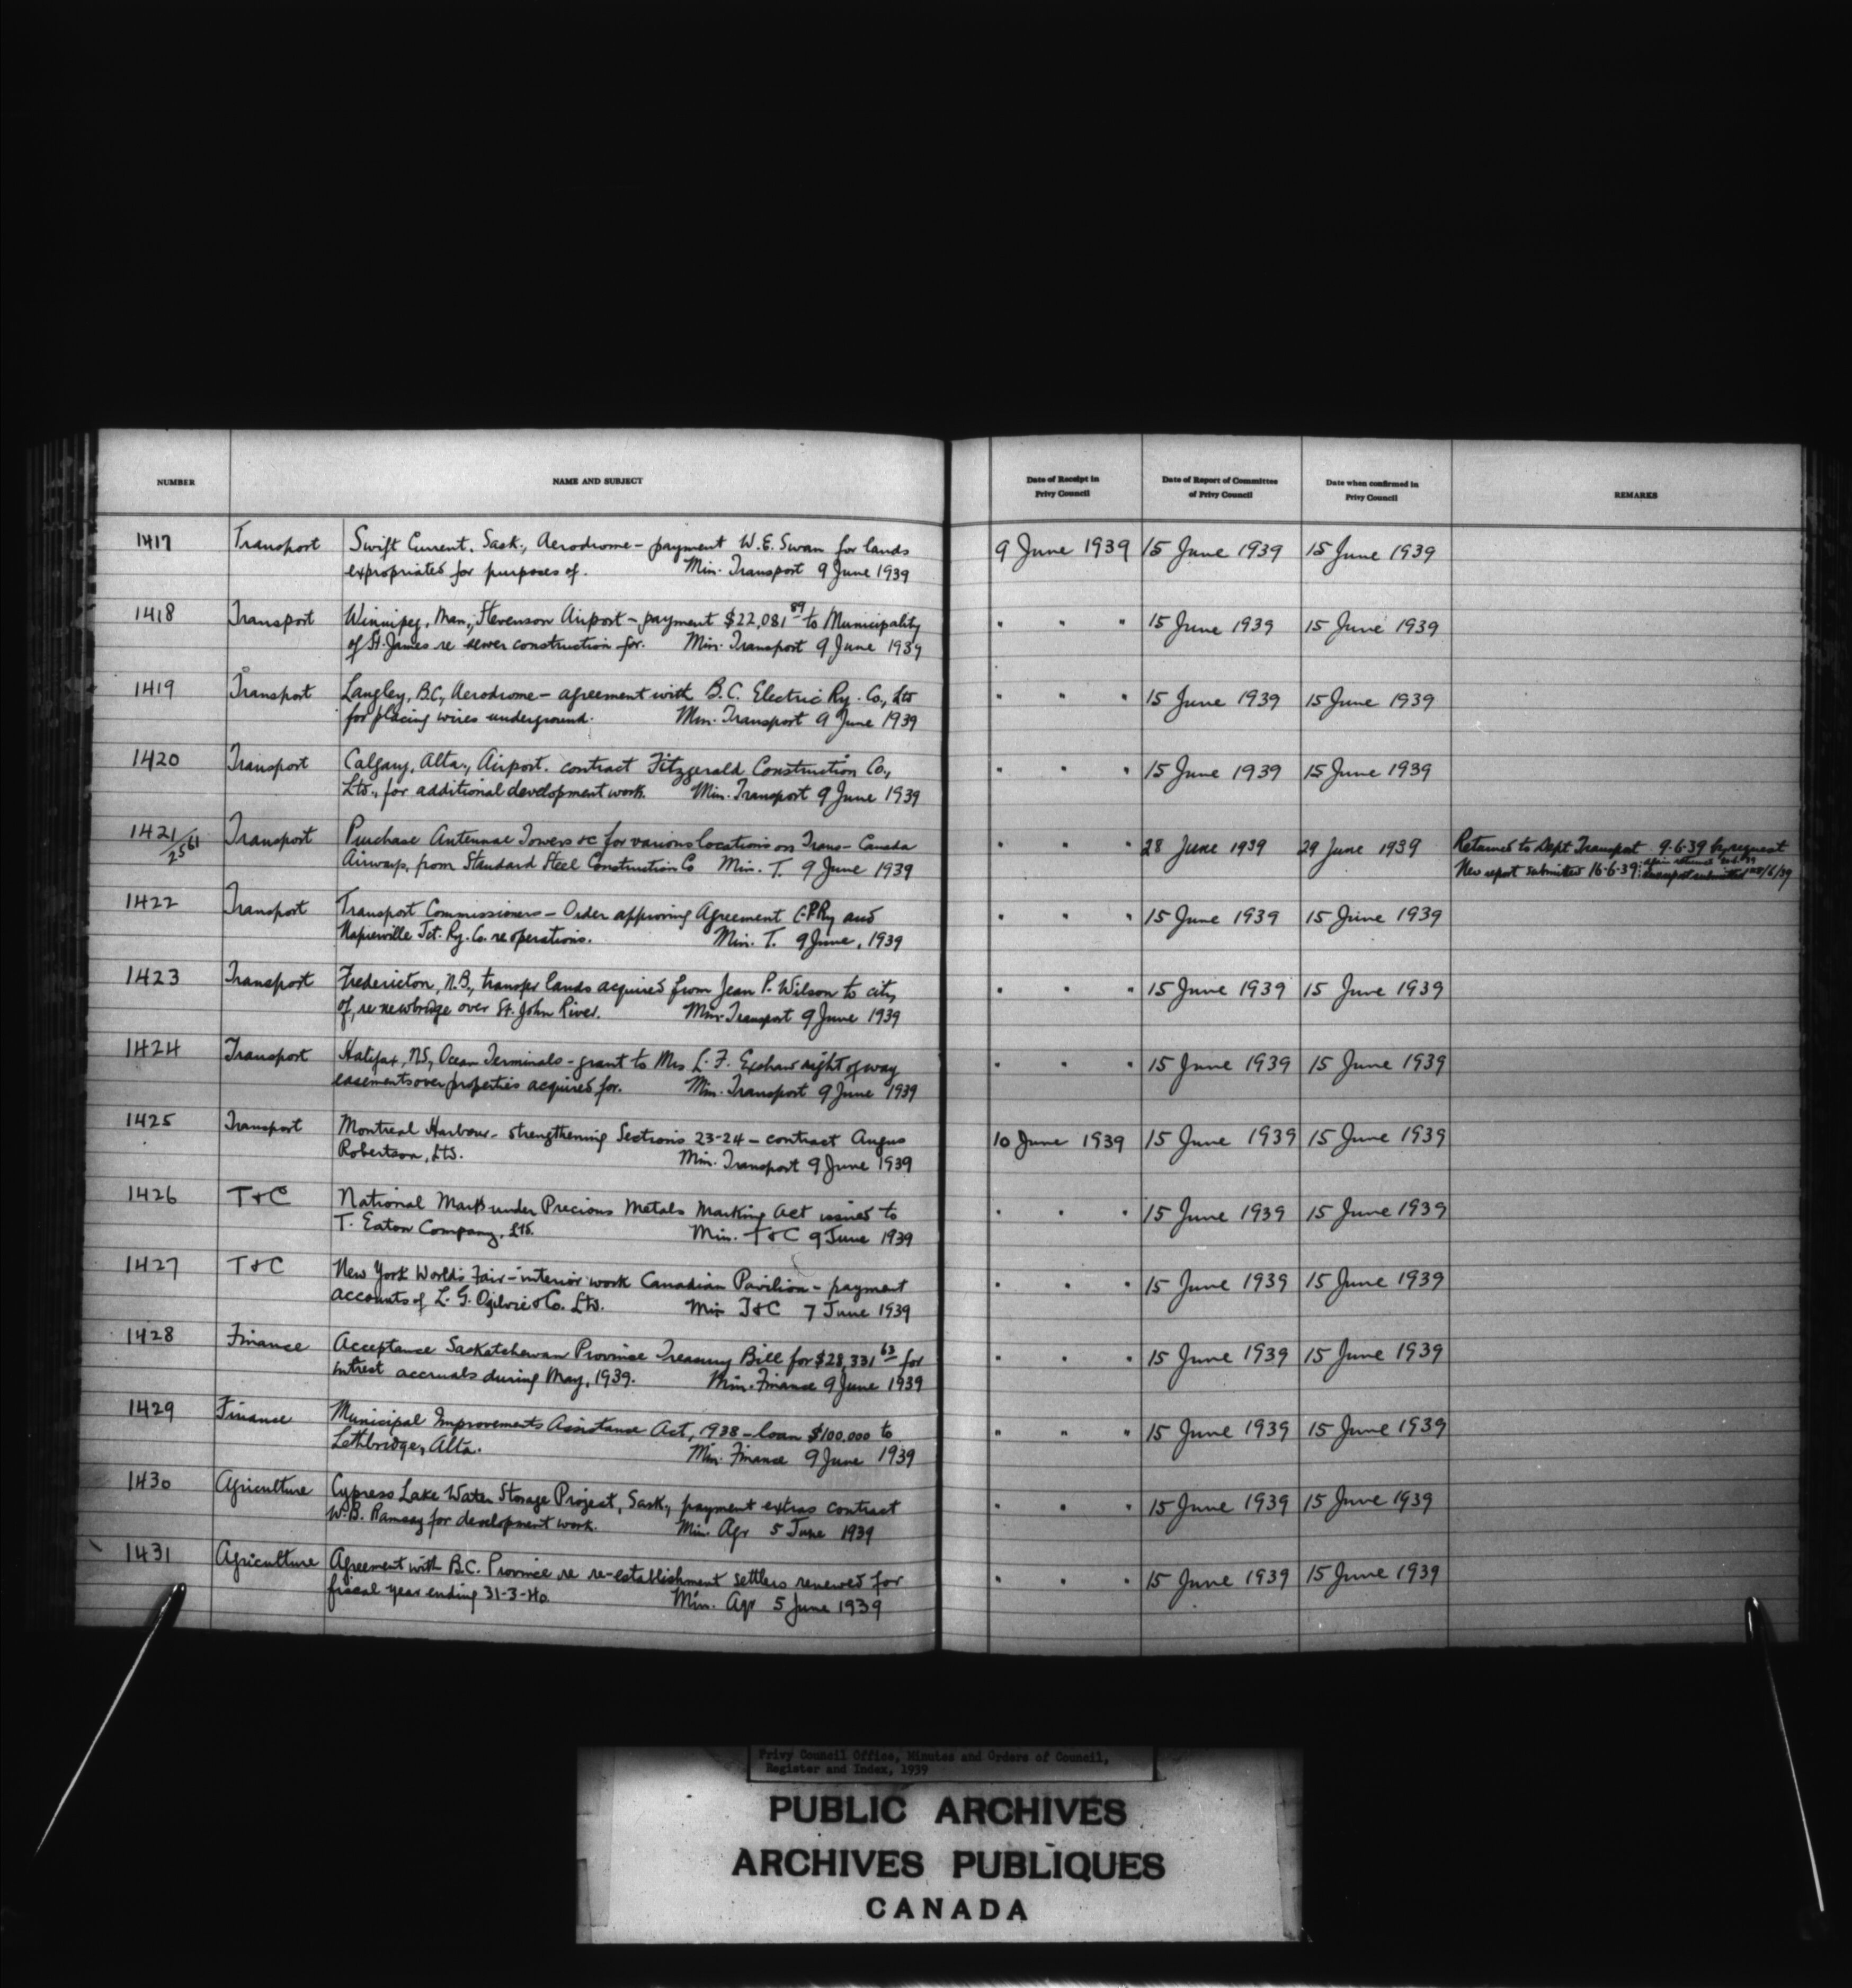 NUMBER NAME AND SUBJECT Date of Receipt in Privy Council Date of Report of Committee of Privy Council Date when confirmed in Privy Council REMARKS
1417 Transport Swift Current, Sask., Aerodrome – payment W.E. Swan for lands 9 June 1939 15 June 1939 15 June 1939
expropriated for purposes of. Min. Transport 9 June 1939
1418 Transport Winnipeg, Man., Stevenson Airport – payment $22,081 89 to Municipality " " " 15 June 1939 15 June 1939
of St. James re sewer construction for. Min. Transport 9 June 1939
1419 Transport Langley, B.C., Aerodrome – agreement with B.C. Electric Ry. Co., Ltd " " " 15 June 1939 15 June 1939
for placing wires underground. Min. Transport 9 June 1939
1420 Transport Calgary, Alta., Airport. contract Fitzgerald Construction Co., " " " 15 June 1939 15 June 1939
Ltd., for additional development work. Min. Transport 9 June 1939
1421/2561 Transport Purchase Antennae Towers &c for various locations on Trans-Canada " " " 28 June 1939 29 June 1939 Returned to Dept Transport 9-6-39 by request
Airways, from Standard Steel Construction Co Min. T. 9 June 1939 New report submitted 16-6-39
1422 Transport Transport Commissioners – Order approving Agreement C.P.Ry and " " " 15 June 1939 15 June 1939
Napierville Jct. Ry. Co. re operations. Min. T. 9 June, 1939
1423 Transport Fredericton, N.B., transfer lands acquired from Jean P. Wilson to city " " " 15 June 1939 15 June 1939
of, re new bridge over St. John River. Min. Transport 9 June 1939
1424 Transport Halifax, NS, Ocean Terminals – grant to Mrs L. F. Exshaw right of way " " " 15 June 1939 15 June 1939
easements over properties acquired for. Min. Transport 9 June 1939
1425 Transport Montreal Harbour – strengthening Sections 23-24 – contract Angus 10 June 1939 15 June 1939 15 June 1939
Robertson, Ltd. Min. Transport 9 June 1939
1426 T & C National Mark under Precious Metals Marking Act issued to " " " 15 June 1939 15 June 1939
T. Eaton Company, Ltd. Min. T & C 9 June 1939
1427 T & C New York World's Fair – interior work Canadian Pavilion – payment " " " 15 June 1939 15 June 1939
accounts of L. G. Ogilvie & Co. Ltd. Min T & C 7 June 1939
1428 Finance Acceptance Saskatchewan Province Treasury Bill for $28,331 63 for " " " 15 June 1939 15 June 1939
intrest accruals during May, 1939. Min. Finance 9 June 1939
1429 Finance Municipal Improvements Assistance Act, 1938 – loan $100,000 to " " " 15 June 1939 15 June 1939
Lethbridge, Alta. Min. Finance 9 June 1939
1430 Agriculture Cypress Lake Water Storage Project, Sask., payment extras contract " " " 15 June 1939 15 June 1939
W.B. Ramsay for development work. Min. Agr 5 June 1939
1431 Agriculture Agreement with B.C. Province re re-establishment settlers renewed for " " " 15 June 1939 15 June 1939
fiscal year ending 31-3-40. Min. Agr 5 June 1939
Privy Council Office, Minutes and Orders of Council,
Register and Index, 1939
PUBLIC ARCHIVES
ARCHIVES PUBLIQUES
CANADA